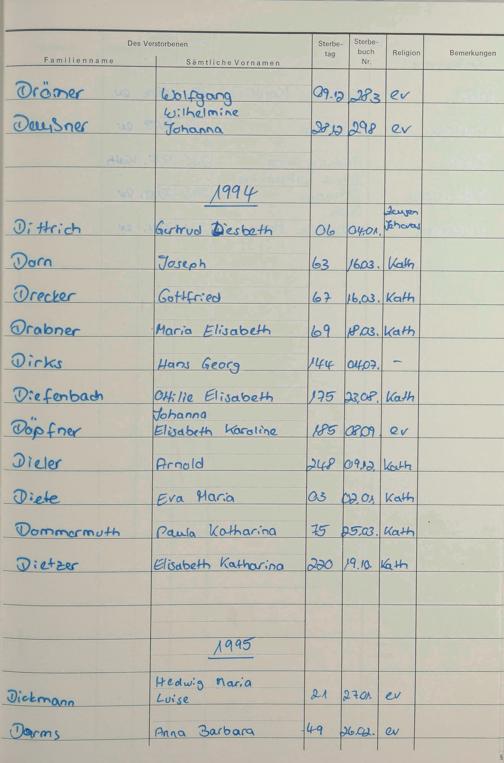 Des Verstorbenen
Familienname Sämtliche Vornamen Sterbe-tag Sterbe-buch Nr. Religion Bemerkungen
Drömer Wolfgang 09.12 283 ev
Wilhelmine
Deußner Johanna 28.12 298 ev
1994
Zeugen
Dittrich Gertrud Liesbeth 06 04.01. Jehovas
Dorn Joseph 63 16.03. Kath
Drecker Gottfried 67 16.03. Kath
Drabner Maria Elisabeth 69 18.03. Kath
Dirks Hans Georg 144 04.07. –
Diefenbach Ottilie Elisabeth 175 23.08. Kath
Johanna
Döpfner Elisabeth Karoline 185 08.09. ev
Dieler Arnold 248 09.12. Kath
Diete Eva Maria 03 02.01. Kath
Dommermuth Paula Katharina 75 25.03. Kath
Dietzer Elisabeth Katharina 220 19.10. Kath
1995
Hedwig Maria
Dickmann Luise 21 27.01. ev
Darms Anna Barbara 49 26.02. ev